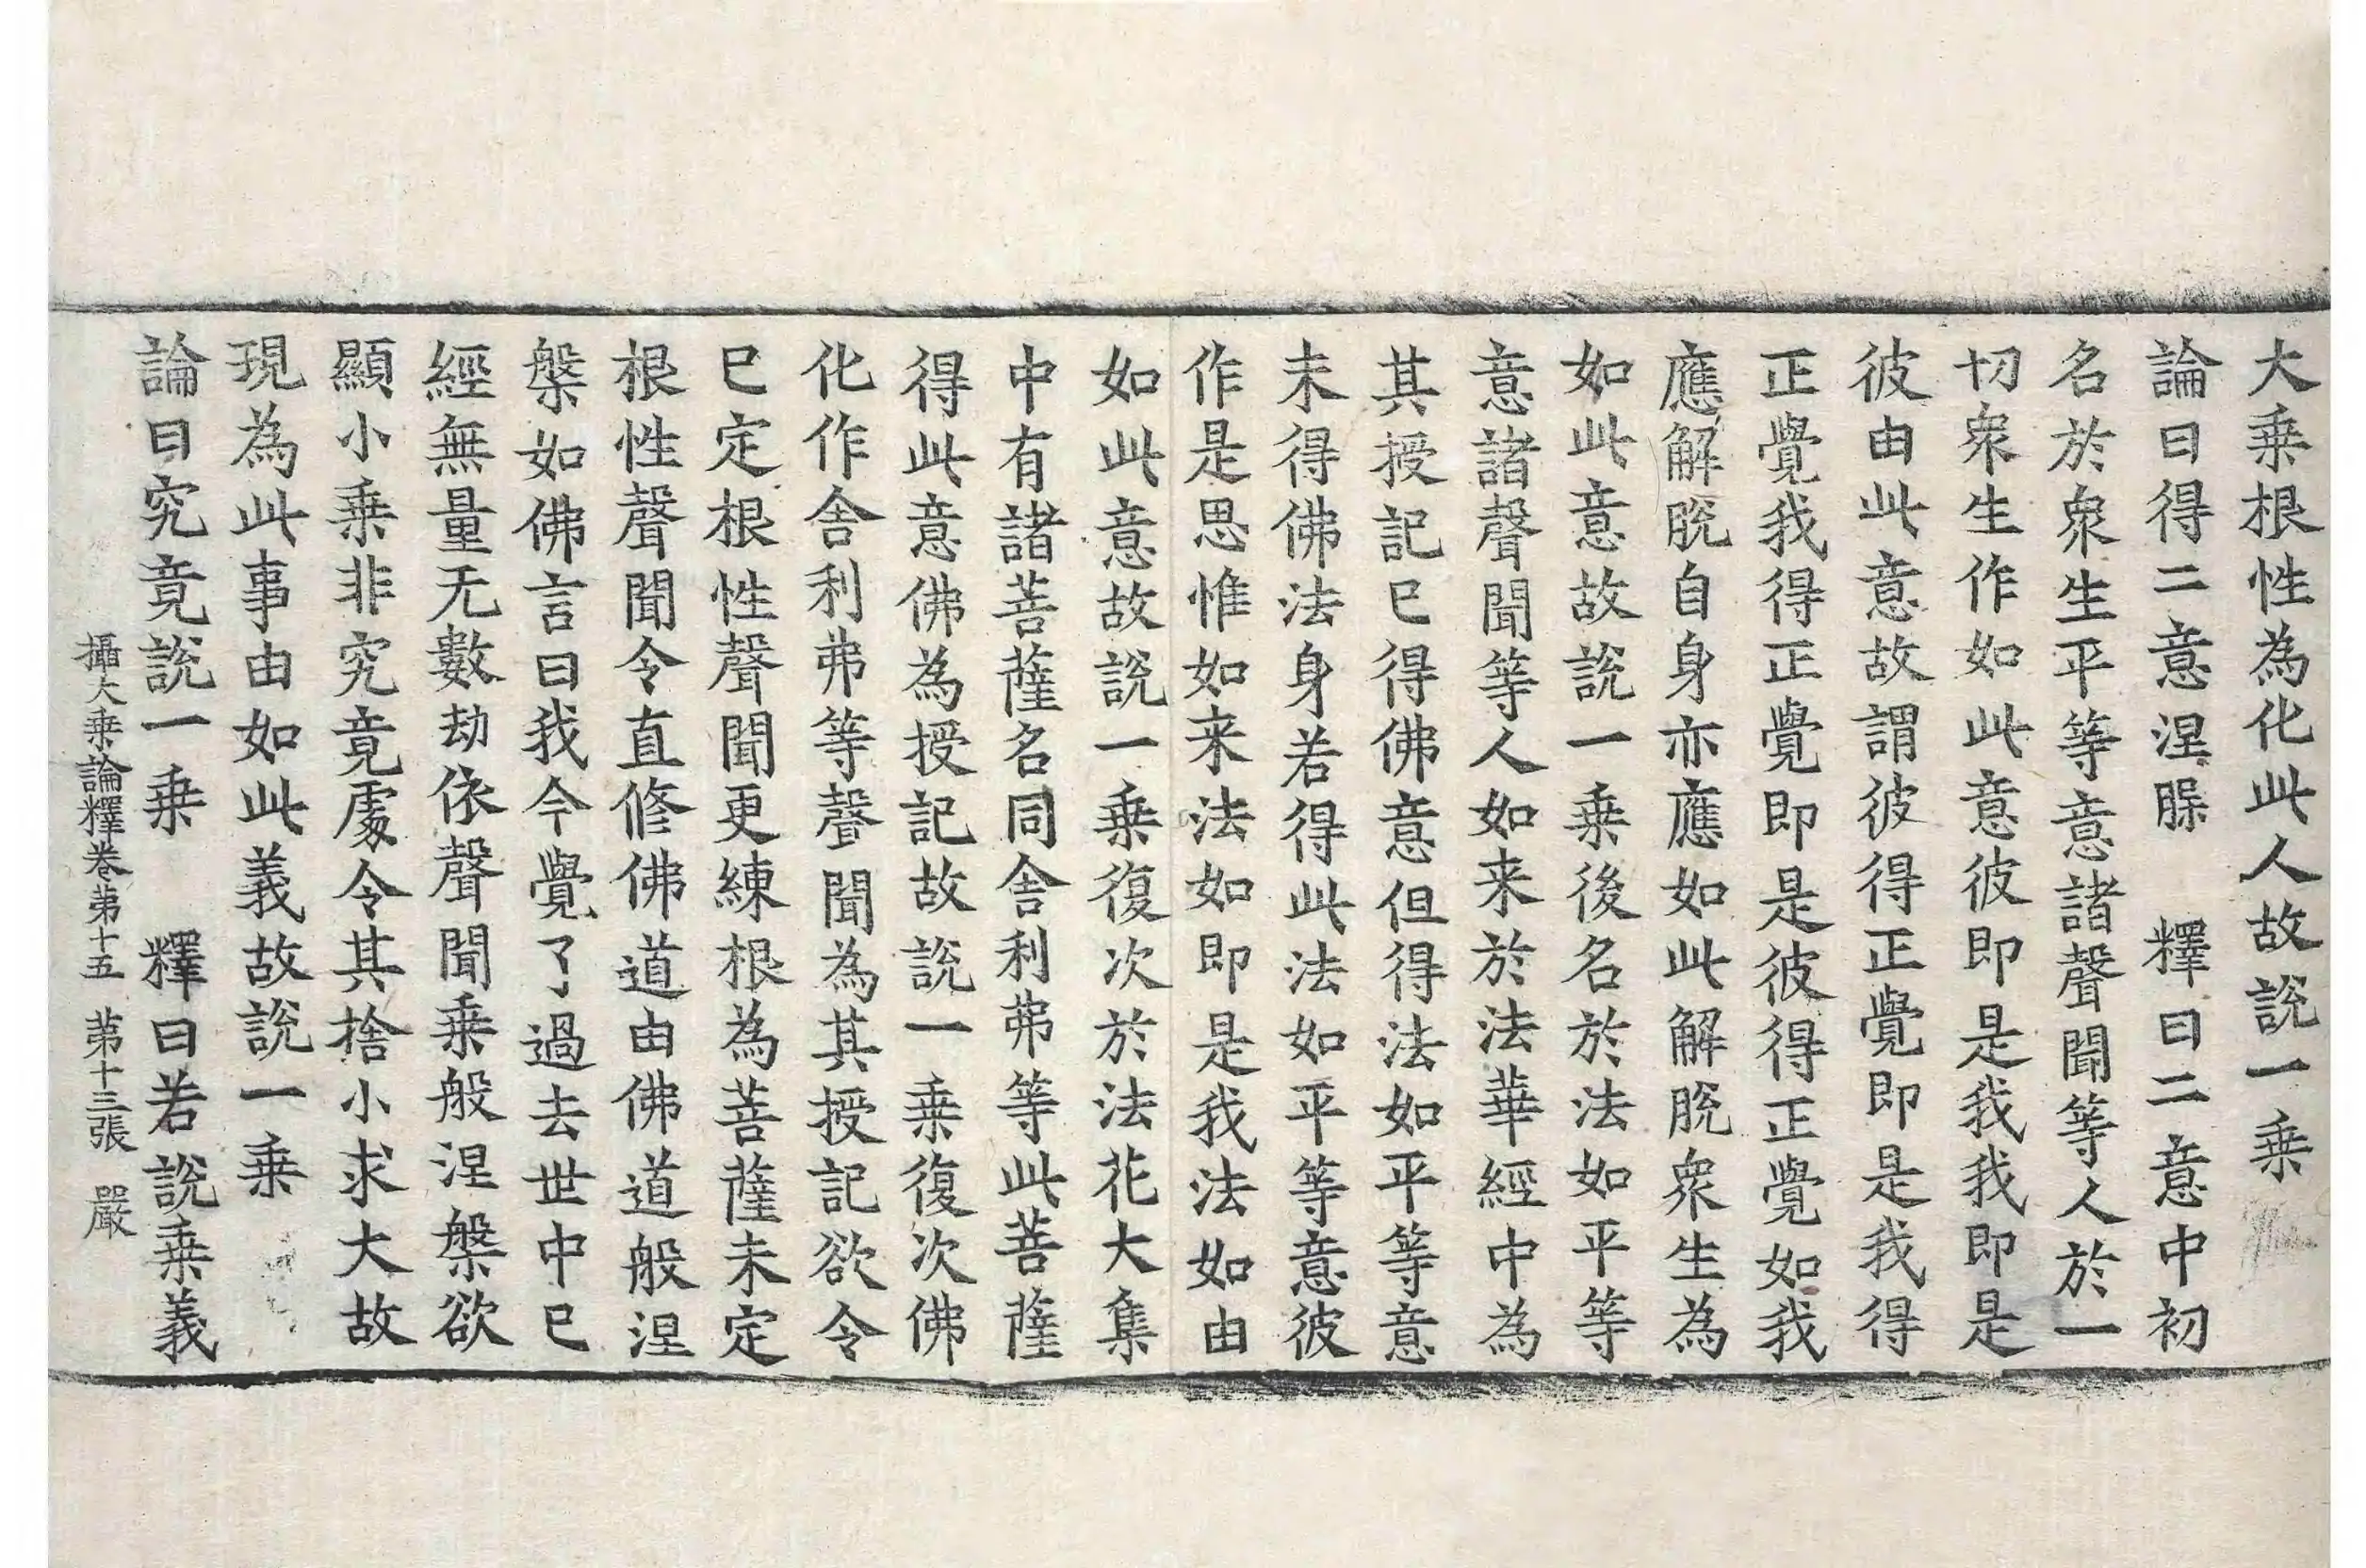 大乗根性為化此人故説一乗
論曰得二意涅脲　釋曰二意中初
名於衆生平等意諸聲聞等人於一
切衆生作如此意彼即是我我即是
彼由此意故謂彼得正覺即是我得
正覺我得正覺即是彼得正覺如我
應解脫自身亦應如此解脫衆生為
如此意故說一乗後名於法如平等
意諸聲聞等人如来於法華經中為
其授記已得佛意但得法如平等意
未得佛法身若得此法如平等意彼
作是思惟如来法如即是我法如由
如此意故說一乗復次於法花大集
中有諸菩薩名同舍利弗等此菩薩
得此意佛為授記故說一乗復次佛
化作舍利弗等聲聞為其授記欲令
已定根性聲聞更練根為菩薩未定
根性聲聞令直修佛道由佛道般涅
槃如佛言曰我今覺了過去世中已
經無量无數劫依聲聞乗般涅槃欲
顯小乗非究竟處令其捨小求大故
現為此事由如此義故說一乗
論曰究竟說一乗　釋曰若說乗義
攝大乗論釋卷第十五　第十三張　嚴